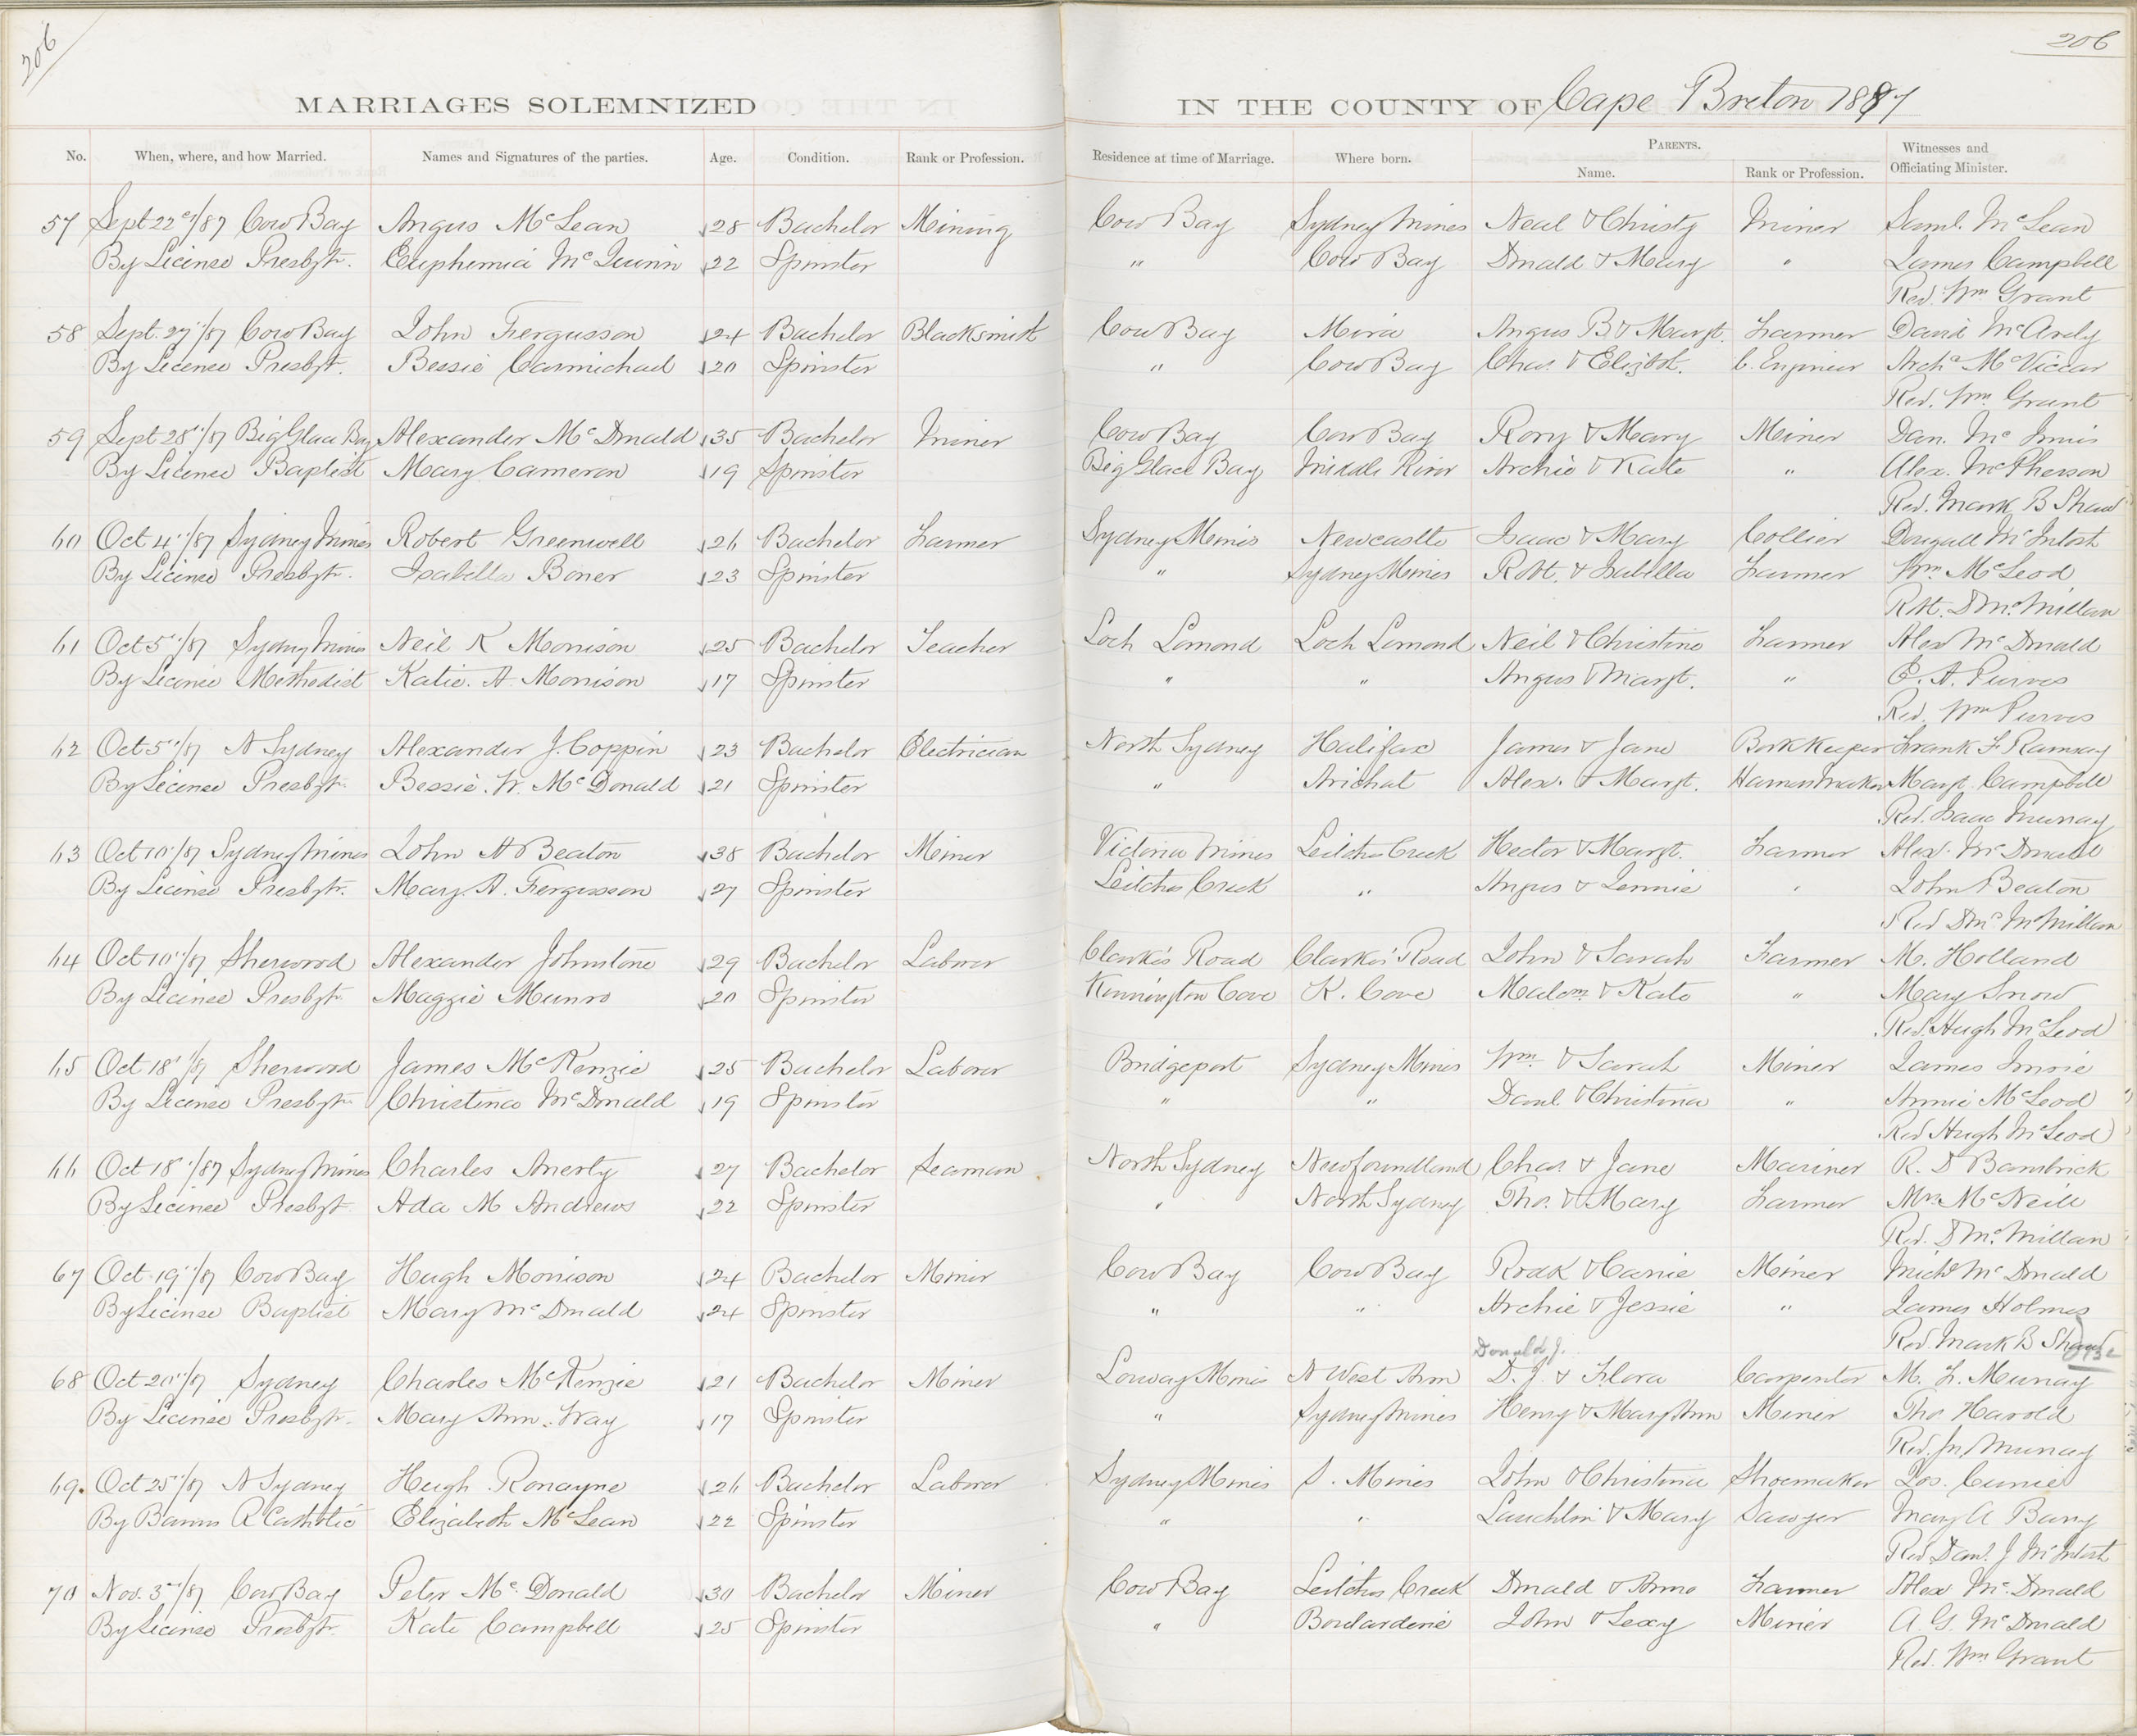 206
206
MARRIAGES SOLEMNIZED IN THE COUNTY OF Cape Breton 1887
No. When, where, and how Married. Names and Signatures of the parties. Age. Condition. Rank or Profession. Residence at time of Marriage. Where born. PARENTS. Witnesses and Officiating Minister.
Name. Rank or Profession.
57 Sept 22d/87 Cow Bay Angus McLean 28 Bachelor Mining Cow Bay Sydney Mines Neal & Christy Miner Saml. McLean
By License Presbyt. Euphemia McQuinn 22 Spinster " Cow Bay Donald & Mary " James Campbell
Rev. Wm Grant
58 Sept. 27"/87 Cow Bay John Fergusson 24 Bachelor Blacksmith Cow Bay Mira Angus B & Margt. Farmer David McAvely
By License Presbyt. Bessie Carmichael 20 Spinster " Cow Bay Chas. & Elizbth. C. Engineer Archd McViccar
Rev. Wm. Grant
59 Sept 28"/87 Big Glace Bay Alexander McDonald 35 Bachelor Miner Cow Bay Cow Bay Rory & Mary Miner Dan. McInnis
By License Baptist Mary Cameron 19 Spinster Big Glace Bay Middle River Archie & Kate " Alex. McPherson
Rev. Mark B Shaw
60 Oct 4"/87 Sydney Mines Robert Greenwell 26 Bachelor Farmer Sydney Mines Newcastle Isaac & Mary Collier Dougall McIntosh
By License Presbytr. Isabella Boner 23 Spinster " Sydney Mines Robt. & Isabella Farmer Wm. McLeod
Rvt. D McMillan
61 Oct 5"/87 Sydney Mines Neil K Morrison 25 Bachelor Teacher Loch Lomond Loch Lomond Neil & Christine Farmer Alex McDonald
By License Methodist Katie. A. Morrison 17 Spinster " " Angus & Margt. " E. A. Purves
Rev. Wm Purves
62 Oct 5"/87 N Sydney Alexander J. Coppin 23 Bachelor Electrician North Sydney Halifax James & Jane Book Keeper Frank F. Ramsay
By License Presbyt. Bessie. W. McDonald 21 Spinster " Arichat Alex. & Margt. Harness Maker Margt Campbell
Rev. Isaac Murray
63 Oct 10"/87 Sydney Mines John A Beaton 38 Bachelor Miner Victoria Mines Leitches Creek Hector & Margt. Farmer Alex. McDonald
By License Presbytr. Mary. A. Fergusson 27 Spinster Leitches Creek " Angus & Jennie " John Beaton
Rev Dm. McMillan
64 Oct 10"/87 Sherwood Alexander Johnstone 29 Bachelor Laborer Clarke's Road Clarke's Road John & Sarah Farmer M. Holland
By License Presbytr Maggie Munro 20 Spinster Kennington Cove K. Cove Malcm. & Kate " Mary Snow
Rev. Hugh McLeod
65 Oct 18"/87 Sherwood James McKenzie 25 Bachelor Laborer Bridgeport Sydney Mines Wm. & Sarah Miner James Imrie
By License Presbytr Christina McDonald 19 Spinster " " Danl. & Christina " Annie McLeod
Rev Hugh McLeod
66 Oct 18"/87 Sydney Mines Charles Anerty 27 Bachelor Seaman North Sydney Newfoundland Chas. & Jane Mariner R. D Bambrick
By License Presbyt. Ada M Andrews 22 Spinster " North Sydney Tho. & Mary Farmer Mrs McNeill
Rev. D McMillan
67 Oct 19"/87 Cow Bay Hugh Morrison 24 Bachelor Miner Cow Bay Cow Bay Rodk & Carrie Miner Michl McDonald
By License Baptist Mary McDonald 24 Spinster " " Archie & Jessie " James Holmes
Rev. Mark B Shaw
Donald J.
68 Oct 20"/87 Sydney Charles McKenzie 21 Bachelor Miner Lorway Mines N West Arm D. J. & Flora Carpenter M. F. Murray
By License Presbytr. Mary Ann Way 17 Spinster " Sydney Mines Henry & Mary Ann Miner Tho. Harold
Rev. Jn Murray
69. Oct 25"/87 N Sydney Hugh Ronayne 26 Bachelor Laborer Sydney Mines S. Mines John & Christina Shoemaker Jos. Currie
By Banns R Catholic Elizabeth McLean 22 Spinster " " Lauchlin & Mary Sawyer Mary A Barry
Rev Danl. J McIntosh
70 Nov. 3rd/87 Cow Bay Peter McDonald 30 Bachelor Miner Cow Bay Leitches Creek Donald & Anne Farmer Alex McDonald
By License Presbytr. Kate Campbell 25 Spinster " Boulardenie John & Lexy Miner A. G. McDonald
Rev. Wm Grant